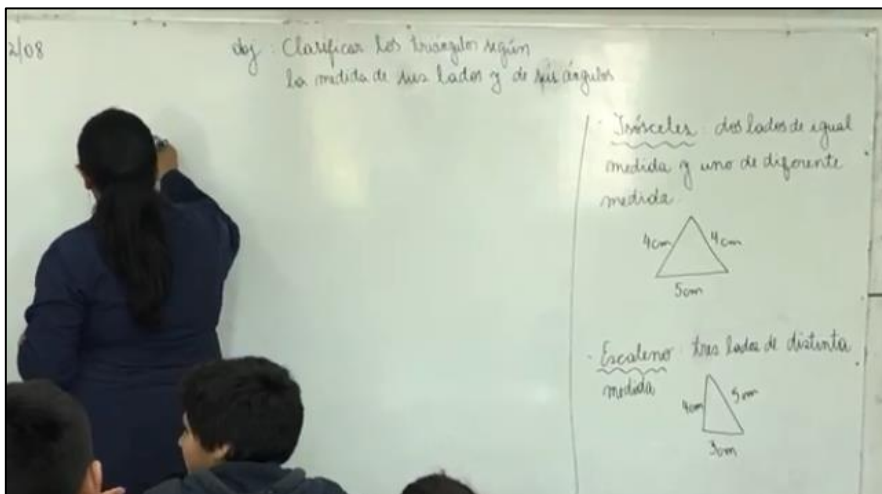 2/08
obj: Clasificar los triángulos según
la medida de sus lados y de sus ángulos
· Isósceles: dos lados de igual
medida y uno de diferente
medida.
4cm 4cm
5cm
· Escaleno: tres lados de distinta
medida
4cm 5cm
3cm